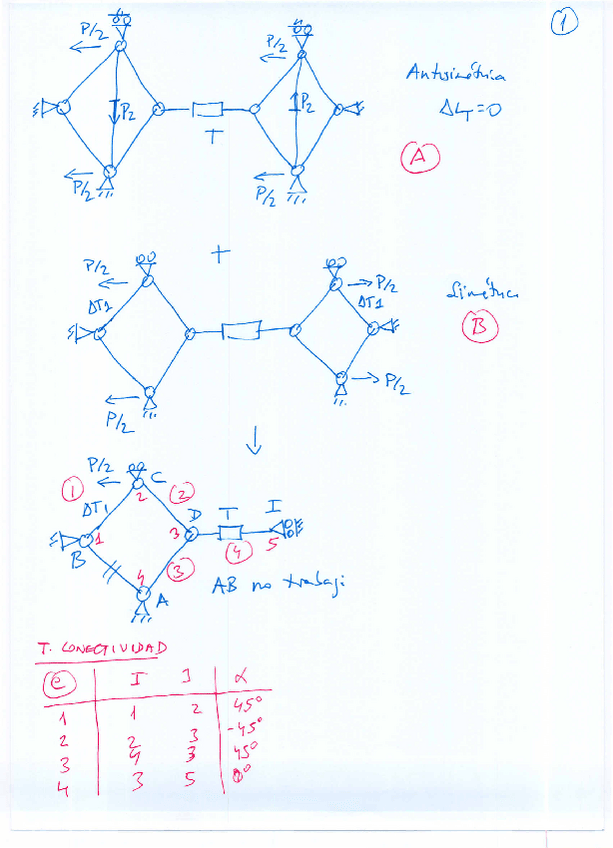 1
P/2 P/2
P2 P2
Antisimétrica
ΔLT=0
T
A
P/2 P/2
+
P/2 P/2
ΔT1 ΔT1
Simétrica
B
P/2 P/2
P/2
1 C 2
ΔT1 2 D T I
3 4 5
B 1
4 3
A AB no trabaja
T. CONECTIVIDAD
e I J α
1 1 2 45°
2 2 3 -45°
3 4 3 45°
4 3 5 0°